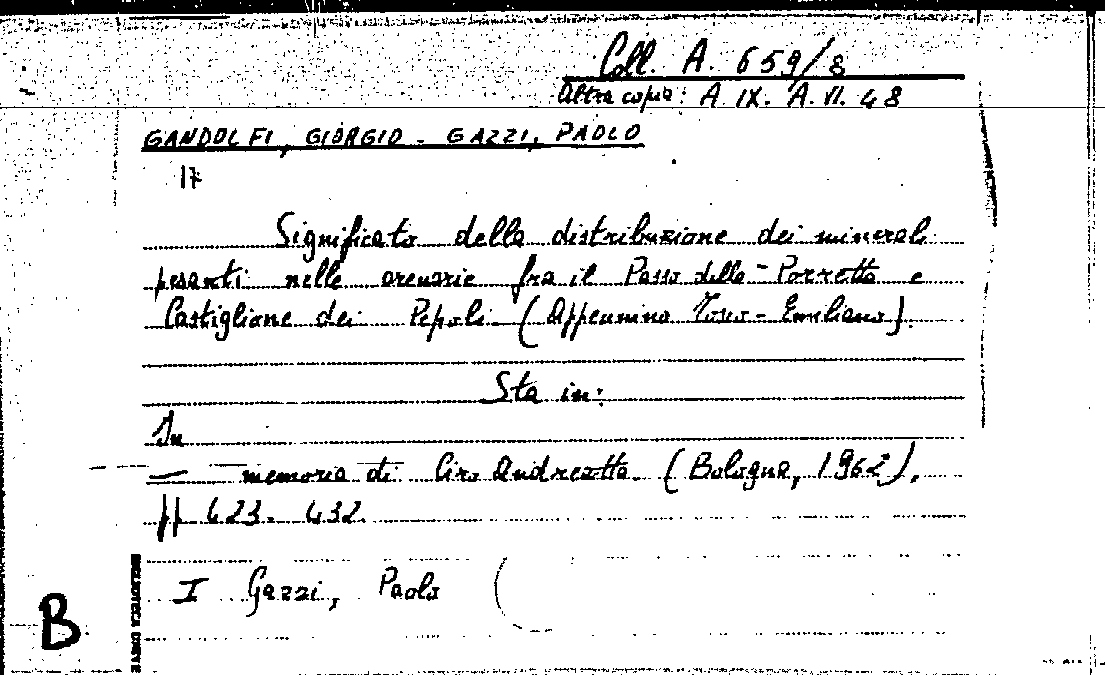 Coll. A. 659/8
Altra copia: A IX. A. VI. 48
GANDOLFI, GIORGIO - GAZZI, PAOLO
17
Significato della distribuzione dei minerali
pesanti nelle arenarie fra il Passo della Porretta e
Castiglione dei Pepoli (Appennino Tosco-Emiliano).
Sta in:
In
— memoria di Ciro Andreatta. (Bologna, 1962).
pp 423-432.
I Gazzi, Paolo (
B
BIBLIOTECA